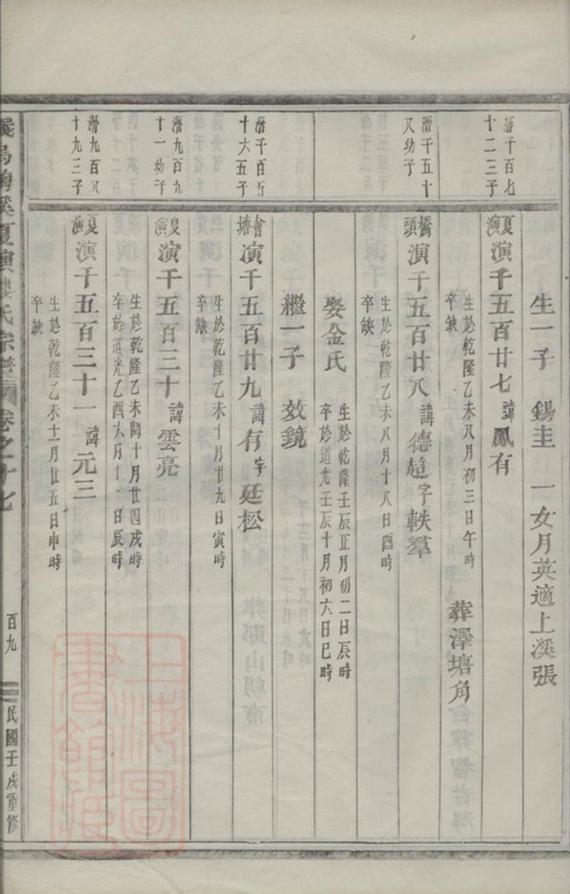 生一子 錫圭 一女月英適上溪張
潛千百七
十二三子
夏演 演千五百廿七 諱 鳳有
生於乾隆乙未八月初三日午時
卒缺
葬澤塘角
潛千五十
又幼子
橋頭 演千五百廿八 諱 德趨 字 軼羣
生於乾隆乙未八月十八日酉時
卒缺
娶金氏
生於乾隆壬辰正月初二日辰時
卒於道光壬辰十月初六日巳時
繼一子 效鏡
潛千百
十六五子
塘 演千五百廿九 諱 有 字 廷松
生於乾隆乙未十月廿九日寅時
卒缺
潛九百九
十一幼子
夏演 演千五百三十 諱 雲亮
生於乾隆乙未閏十月廿四戌時
卒於道光乙酉六月十一日辰時
潛九百八
十九三子
夏演 演千五百三十一 諱 元三
生於乾隆乙未十一月廿五日申時
卒缺
義烏梅溪夏演樓氏宗譜 卷之十七
百九
民國壬戌重修
上海圖書館藏